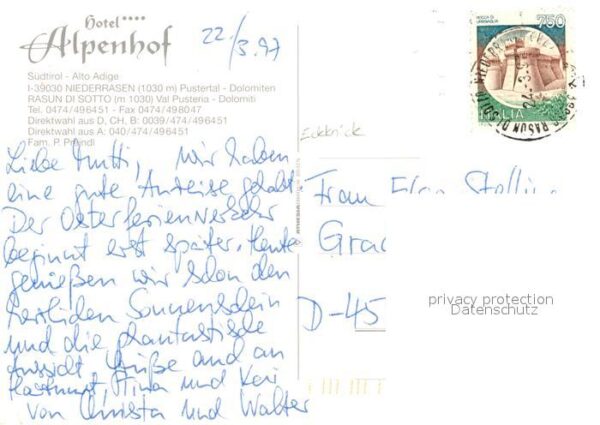 Hotel ****
Alpenhof
22/3.97
Südtirol - Alto Adige
I-39030 NIEDERRASEN (1030 m) Pustertal - Dolomiten
RASUN DI SOTTO (m 1030) Val Pusteria - Dolomiti
Tel. 0474/496451 - Fax 0474/498047
Direktwahl aus D, CH, B: 0039/474/496451
Direktwahl aus A: 040/474/496451
Fam. P. Preindl
Liebe Mutti, wir haben
eine gute Anreise gehabt
Der Osterferienverkehr
beginnt erst später. Heute
genießen wir schon den
herzlichen Sonnenschein
und die phantastische
Aussicht. Grüße auch an
Hartmut, Nina und Kai
von Christa und Walter
Eckbrick
ROCCA DI URBISAGLIA
750
ITALIA
RASUN DI SOTTO
Frau
D-45
privacy protection
Datenschutz